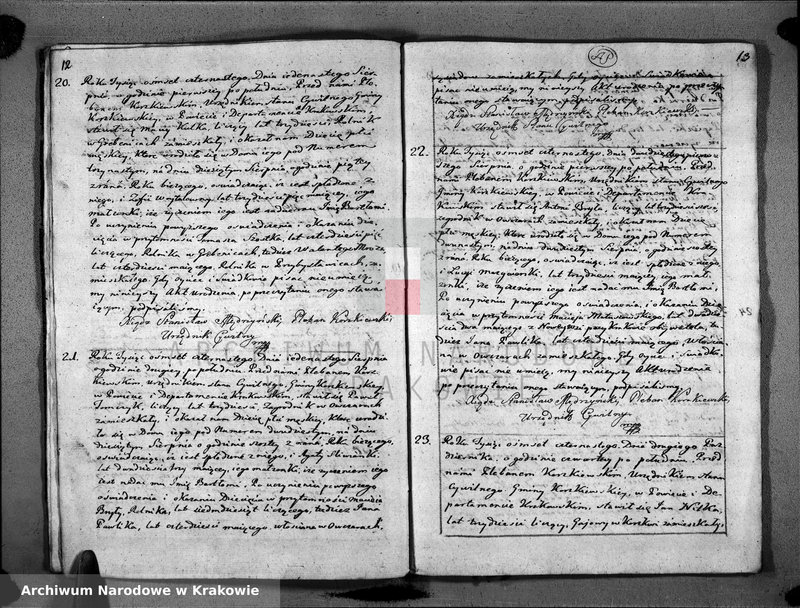 12
20. Roku Tysiąc osmset czternastego, Dnia jedenastego Sier-
pnia o godzinie pierwszey po południu. Przed nami Ple-
banem Korzkiewskim, Urzędnikiem Stanu Cywilnego Gminy
Korzkiewskiey, w Powiecie i Departamencie Krakowskim,
stawił się Maciey Kulka, liczący lat trzydzieści, Rolnik
w Grębenicach zamieszkały, i okazał nam Dziecię płci
męskiey, które urodziło się w Domu iego pod Numerem
trzynastym, na dniu dziesiątym Sierpnia, o godzinie piątey
zrana, Roku bieżącego, oświadczaiąc, iż iest spłodzone z
niego, i Zofii lat trzydzieści pięć maiącey, iego
małżonki, iż życzeniem iego iest nadać mu Imię Bartłomi.
Po uczynieniu powyższego oświadczenia i okazaniu dzie-
cięcia w przytomności Tomasza Szostka, lat czterdzieści pięć
liczącego, Rolnika w Grębenicach, tudzież Walentego Mroza,
lat czterdzieści maiącego, Rolnika w Przybysławicach, za-
mieszkałego. Gdy oyciec i świadkowie pisać nieumieią,
my ninieyszy Akt Urodzenia, po przeczytaniu onego stawa-
iącym, podpisaliśmy.
Xiądz Stanisław Mędrzyński, Pleban Korzkiewski,
Urzędnik Cywilny
21. Roku Tysiąc osmset czternastego, Dnia jedenastego Sierpnia
o godzinie drugiey po południu. Przed nami Plebanem Korz-
kiewskim, Urzędnikiem Stanu Cywilnego, Gminy Korzkiewskiey
w Powiecie i Departamencie Krakowskim, stawił się Paweł
Tomczyk, liczący lat trzydzieści, Zagrodnik w Owczarach
zamieszkały, i okazał nam Dziecię płci męskiey, które urodzi-
ło się w Domu iego pod Numerem dwudziestym, na dniu
dziesiątym Sierpnia o godzinie szóstey z rana, Roku bieżącego,
oświadczaiąc, iż iest spłodzone z niego, i Agaty Sliwianki
lat dwadzieścia trzy maiącey, iego małżonki, iż życzeniem iego
iest nadać mu Imię Bartłomi. Po uczynieniu powyższego
oświadczenia i okazaniu Dziecięcia w przytomności Macieia
Bryły, Rolnika, lat siedmdziesiąt liczącego, tudzież Jana
Pawlika, lat czterdzieści maiącego, włościan w Owczarach,
13
zamieszkałych. Gdy oyciec i świadkowie
pisać nieumieią, my ninieyszy Akt urodzenia po przeczy-
taniu onego stawaiącym podpisaliśmy.
Xiądz Stanisław Mędrzyński, Pleban Korzkiewski
Urzędnik Stanu Cywilnego
22. Roku Tysiąc osmset czternastego, dnia dwudziestego pierw-
szego Sierpnia, o godzinie pierwszey po południu. Przed
nami Plebanem Korzkiewskim, Urzędnikiem Stanu Cywilnego
Gminy Korzkiewskiey, w Powiecie i Departamencie Kra-
kowskim, stawił się Antoni Bryła, liczący lat trzydzieści,
Zagrodnik w Owczarach zamieszkały, i okazał nam Dziecię
płci męskiey, które urodziło się w Domu iego pod Numerem
dwunastym, na dniu dwudziestym Sierpnia o godzinie szóstey
zrana, Roku bieżącego, oświadczaiąc, iż iest spłodzone z niego,
i Łucyi lat trzydzieści maiącey iego mał-
żonki, iż życzeniem iego iest nadać mu Imię Bartłomi.
Po uczynieniu powyższego oświadczenia, i okazaniu Dzie-
cięcia w przytomności Macieia lat dwadzie-
ścia dwa maiącego z
tudzież Jana Pawlika, lat czterdzieści maiącego, Włościa-
nina w Owczarach zamieszkałego. Gdy oyciec, i świadko-
wie pisać nie umieią, my ninieyszy Akt urodzenia
po przeczytaniu onego stawaiącym, podpisaliśmy.
Xiądz Stanisław Mędrzyński, Pleban Korzkiewski,
Urzędnik Cywilny
23. Roku Tysiąc osmset czternastego, Dnia drugiego Paź-
dziernika, o godzinie czwartey po południu. Przed
nami Plebanem Korzkiewskim, Urzędnikiem Stanu
Cywilnego Gminy Korzkiewskiey, w Powiecie i De-
partamencie Krakowskim, stawił się Jan Nitka,
lat trzydzieści liczący, Gajowy w Korzkwi zamieszkały,
ARCHIWUM NARODOWE
W KRAKOWIE
Archiwum Narodowe w Krakowie